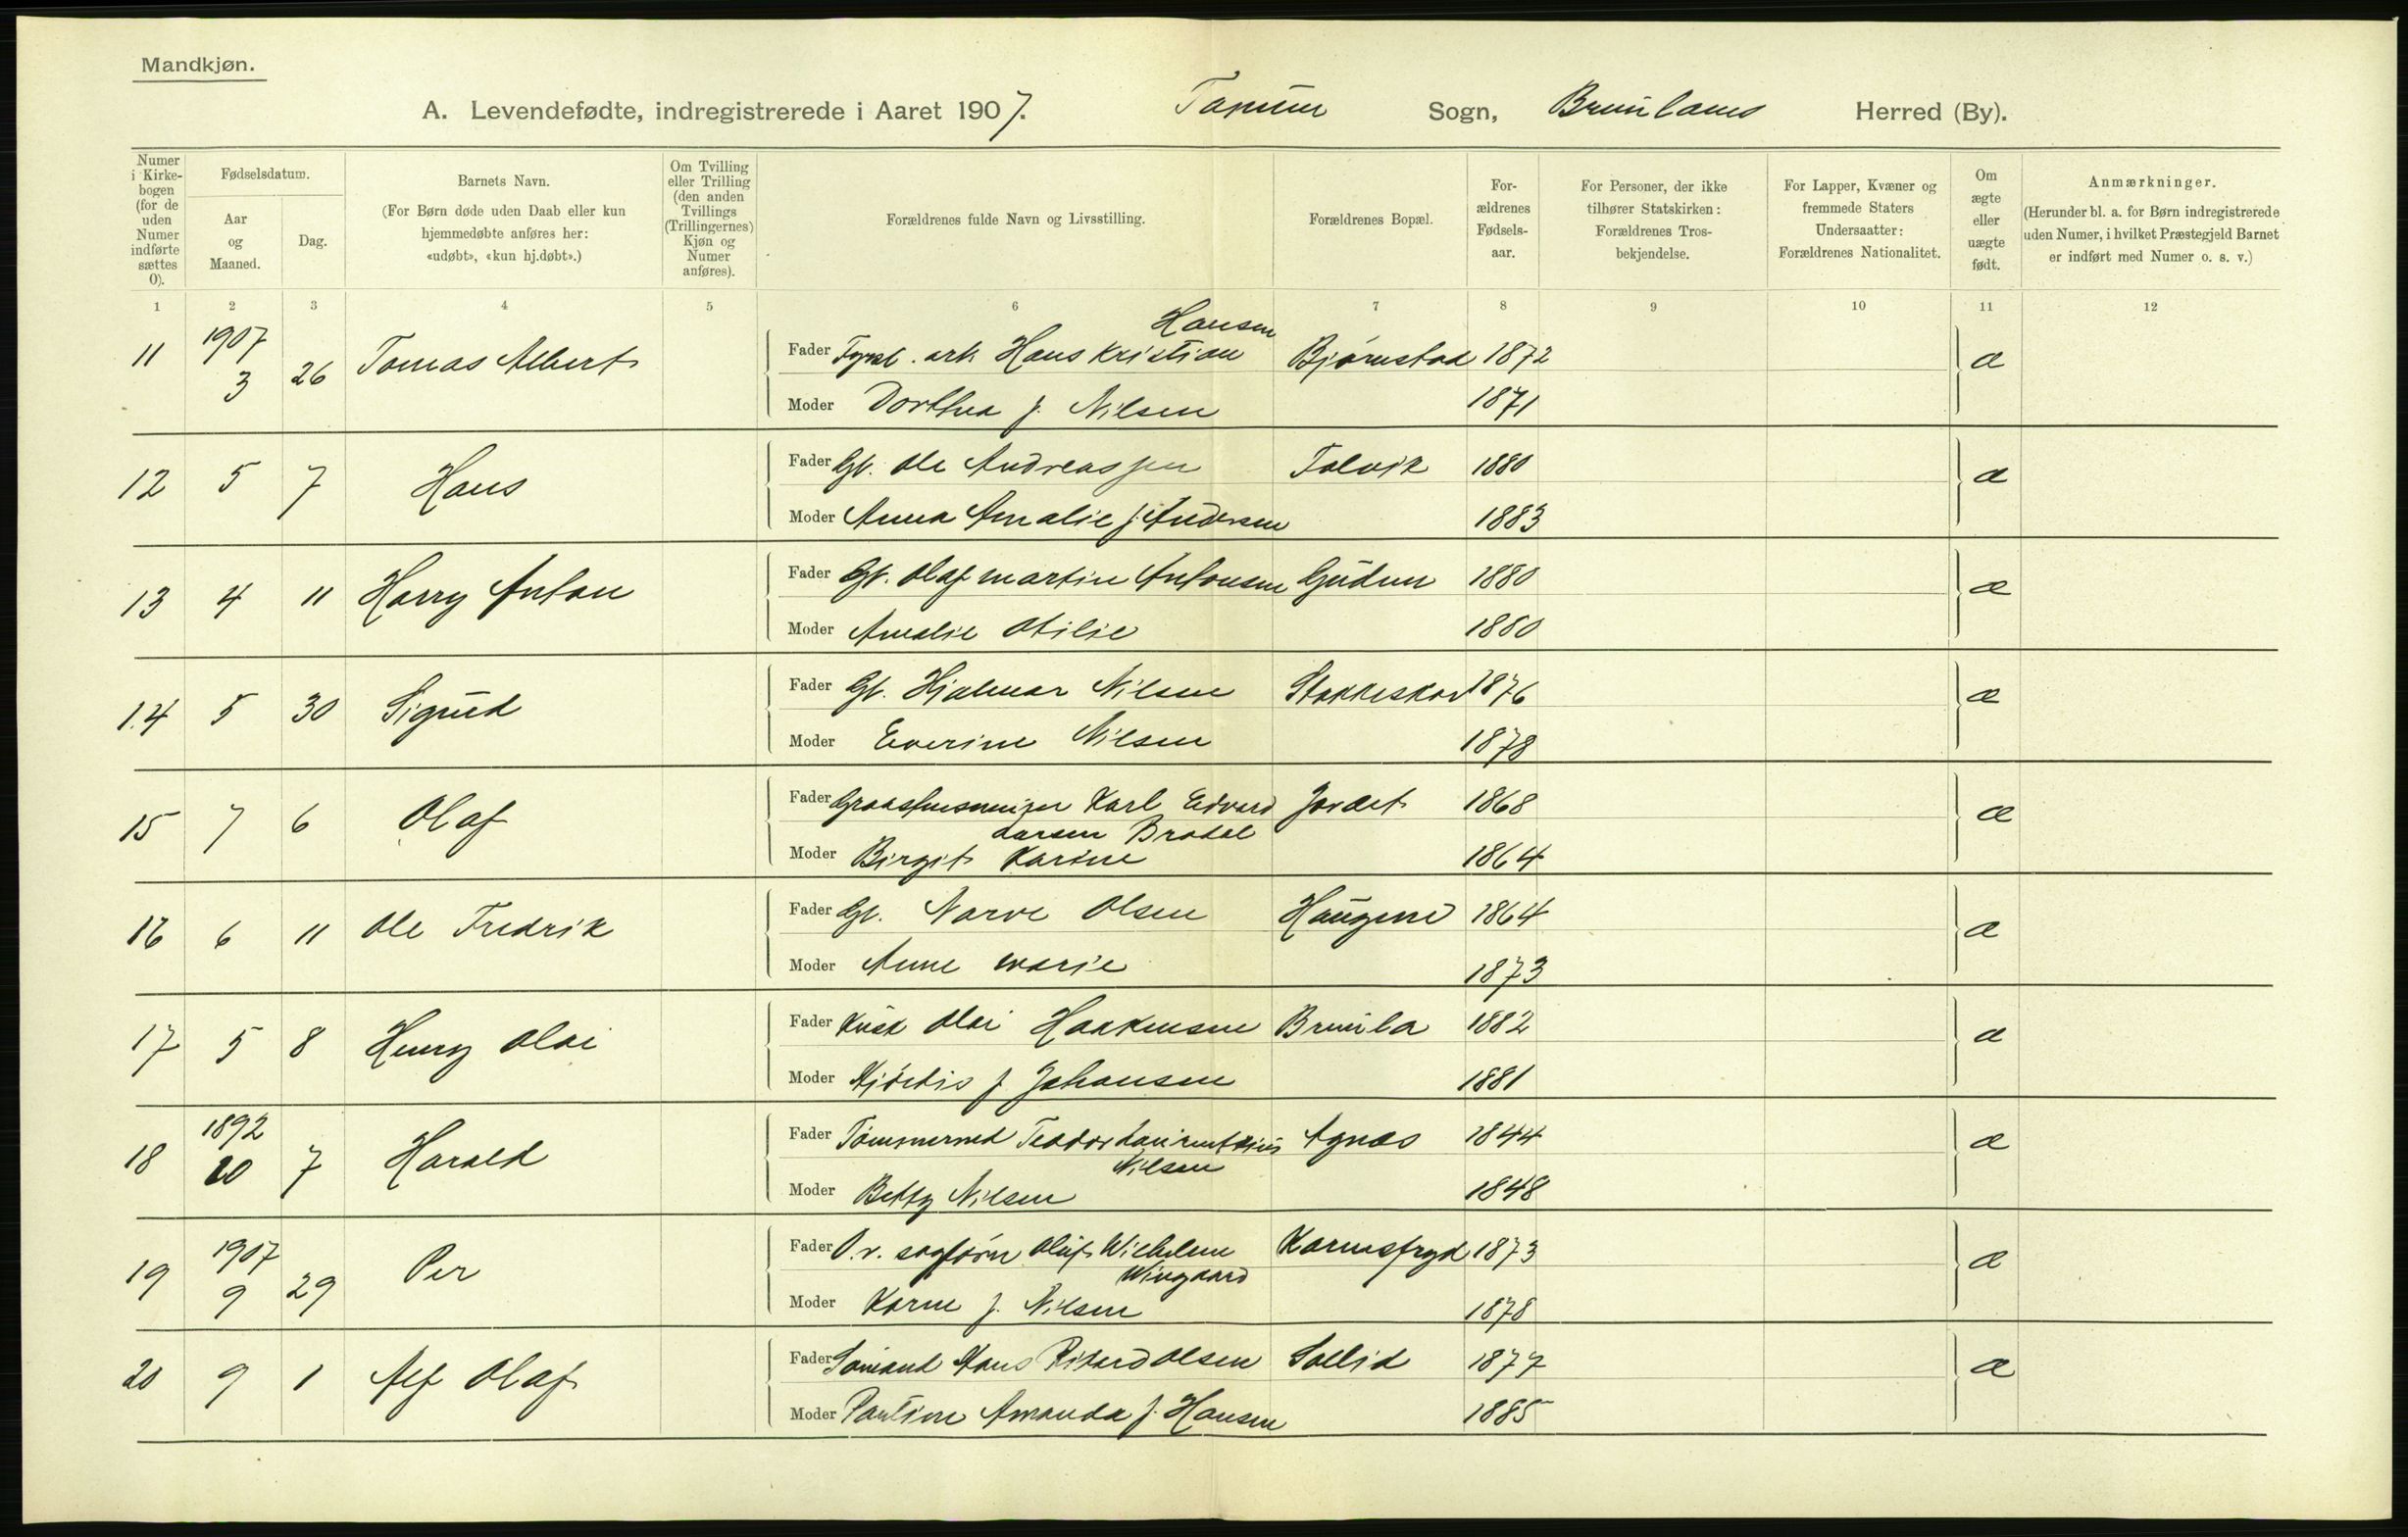 Mandkjøn.
A. Levendefødte, indregistrerede i Aaret 1907. Tanum Sogn, Brunlanes Herred (By).
Numer i Kirkebogen (for de uden Numer indførte sættes 0).
Fødselsdatum.
Aar og Maaned.
Dag.
Barnets Navn.
(For Børn døde uden Daab eller kun hjemmedøbte anføres her: «udøbt», «kun hj.døbt».)
Om Tvilling eller Trilling (den anden Tvillings (Trillingernes) Kjøn og Numer anføres).
Forældrenes fulde Navn og Livsstilling.
Forældrenes Bopæl.
Forældrenes Fødselsaar.
For Personer, der ikke tilhører Statskirken: Forældrenes Trosbekjendelse.
For Lapper, Kvæner og fremmede Staters Undersaatter: Forældrenes Nationalitet.
Om ægte eller uægte født.
Anmærkninger.
(Herunder bl. a. for Børn indregistrerede uden Numer, i hvilket Præstegjeld Barnet er indført med Numer o. s. v.)
1 2 3 4 5 6 7 8 9 10 11 12
11 1907 3 26 Tomas Albert Fader arb. Hans Kristian Hansen Bjørnstad 1872 æ
Moder Dorthea f. Nilsen 1871
12 5 7 Hans Fader Gb. Ole Andreassen Tolvik 1880 æ
Moder Anna Amalie f. Andersen 1883
13 4 11 Harry Anton Fader Gb. Olaf Martin Antonsen Gudum 1880 æ
Moder Amalie Otilie 1880
14 5 30 Sigurd Fader Gb. Hjalmar Nilsen 1876 æ
Moder Everine Nilsen 1878
15 7 6 Olaf Fader Karl Edvard Jordet 1868 æ
Larsen Bradal
Moder Birgit Karine 1864
16 6 11 Ole Fredrik Fader Gb. Narve Olsen Haugene 1864 æ
Moder Anne Marie 1873
17 5 8 Henry Olai Fader Kusk Olai Haakensen Brunla 1882 æ
Moder Hjørdis f Johansen 1881
18 1892 10 7 Harald Fader Tømmermd Teodor Laurentsius Agnæs 1844 æ
Nilsen
Moder Betty Nilsen 1848
19 1907 9 29 Per Fader O.r. sagfører Oluf Wilhelm Karmsfryd 1873 æ
Wingaard
Moder Karne f. Nilsen 1878
20 9 1 Alf Olaf Fader Sømand Hans Rikard Olsen Sollid 1877 æ
Moder Pauline Amanda f. Hansen 1885